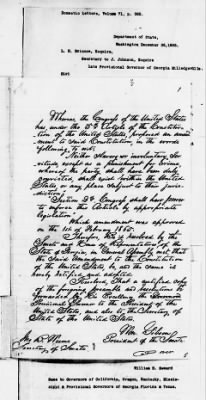 Domestic Letters, Volume 71, p.
Department of State,
Washington December 1865.
L. H. Briscoe, Esquire,
Secretary to J. Johnson, Esquire
Late Provisional Governor of Georgia Milledgeville.
Sir:
Whereas, the Congress of the United States
has under the 5th Article of the Constitu-
tion of the United States, proposed an amend-
ment to said Constitution, in the words
following, to wit:
"Neither Slavery nor involuntary Ser-
vitude, except as a punishment for crime,
whereof the party shall have been duly
convicted, shall exist within the United
States, or any place subject to their juris-
diction.
Section 2d. Congress shall have power
to enforce this Article by appropriate
legislation."
Which amendment was approved
on the 1st of February 1865.
Therefore, Be it resolved by the
Senate and House of Representatives of the
State of Georgia, in General Assembly met, that
the said Amendment to the Constitution
of the United States, be, and the same is
hereby ratified and adopted.
Resolved, That a certified copy
of the foregoing preamble and resolution be
forwarded by His Excellency the
Provisional Governor to the President of the
United States, and also to the Secretary of
State of the United States.
President of the Senate
Secretary of Senate
William H. Seward
Same to Governors of California, Oregon, Kentucky, Mississ-
ippi & Provisional Governors of Georgia Florida & Texas.